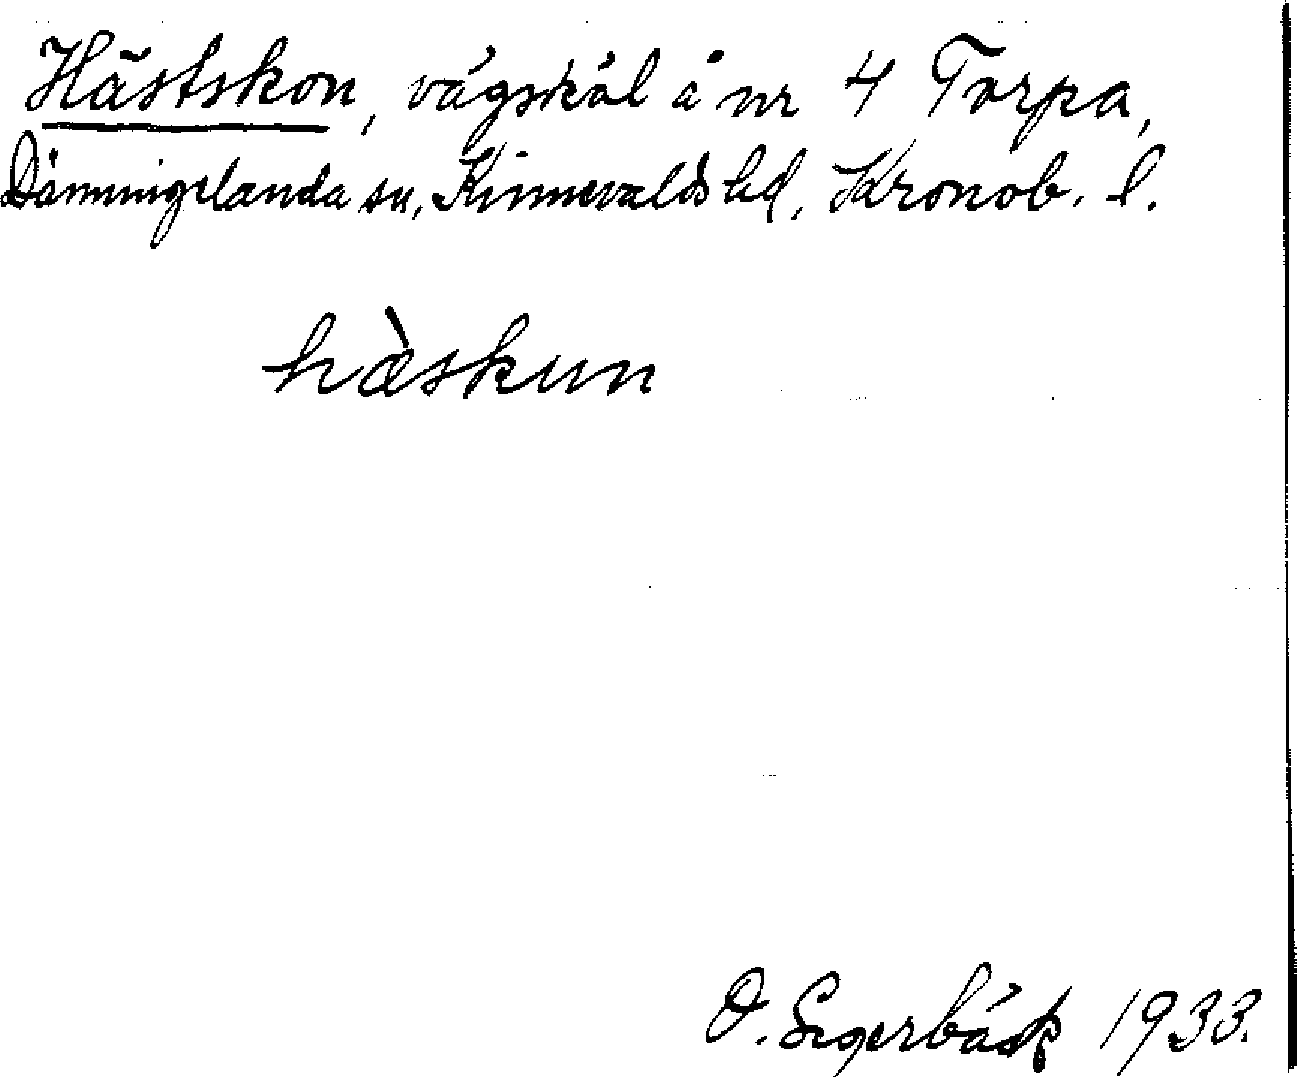 Hästskon, vägskäl å nr 4 Torpa,
Dänningelanda sn, Kinnevalds hd, Kronob. l.
hæ̀skun
O. Segerbäck 1933.